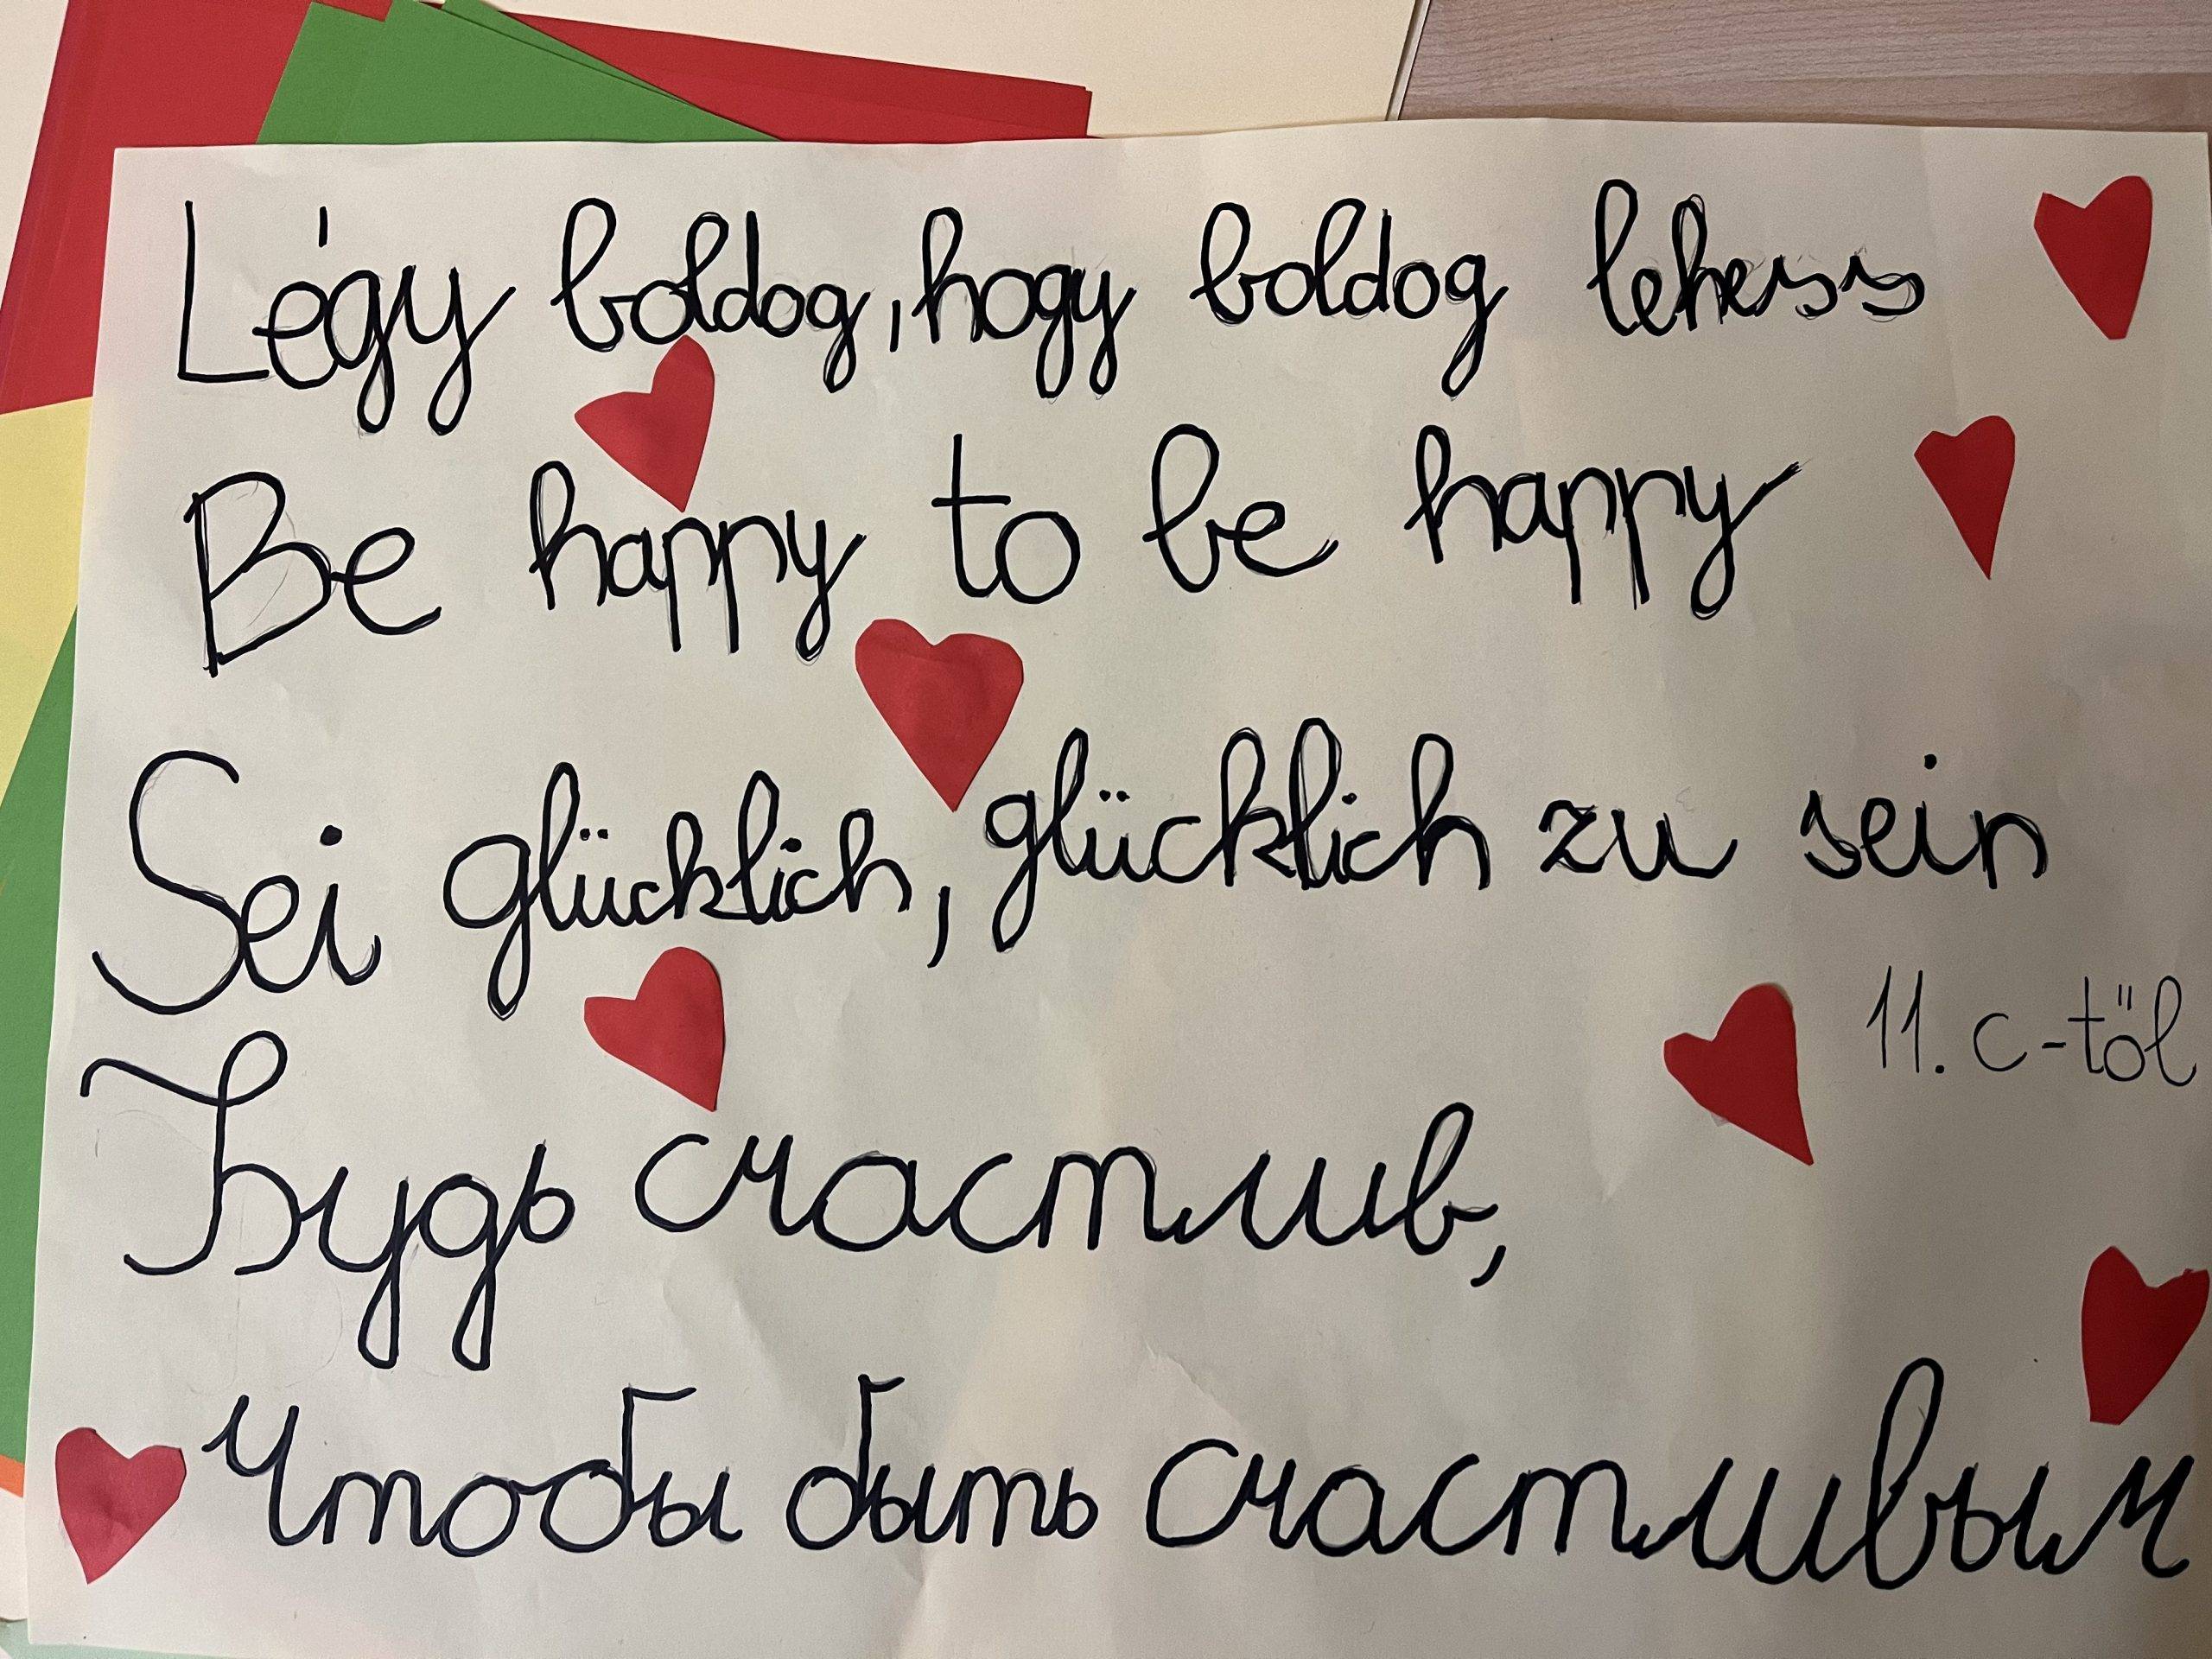 Légy boldog, hogy boldog lehess
Be happy to be happy
Sei glücklich, glücklich zu sein
11. c-től
Будь счастлив,
Чтобы быть счастливым